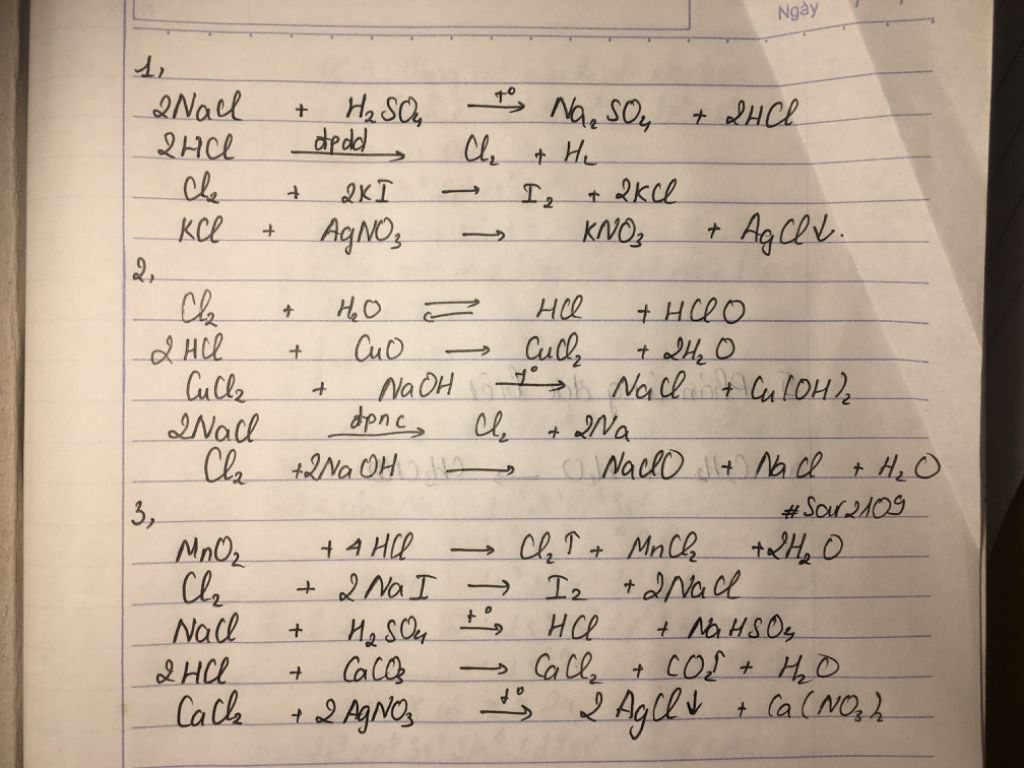 Ngày
1,
2NaCl + H₂SO₄ —t°→ Na₂SO₄ + 2HCl
2HCl —đpdd→ Cl₂ + H₂
Cl₂ + 2KI → I₂ + 2KCl
KCl + AgNO₃ → KNO₃ + AgCl↓.
2,
Cl₂ + H₂O ⇌ HCl + HClO
2HCl + CuO → CuCl₂ + 2H₂O
CuCl₂ + NaOH —t°→ NaCl + Cu(OH)₂
2NaCl —đpnc→ Cl₂ + 2Na
Cl₂ + 2NaOH → NaClO + NaCl + H₂O
#Sar2109
3,
MnO₂ + 4HCl → Cl₂↑ + MnCl₂ + 2H₂O
Cl₂ + 2NaI → I₂ + 2NaCl
NaCl + H₂SO₄ —t°→ HCl + NaHSO₄
2HCl + CaCO₃ → CaCl₂ + CO₂↑ + H₂O
CaCl₂ + 2AgNO₃ —t°→ 2AgCl↓ + Ca(NO₃)₂